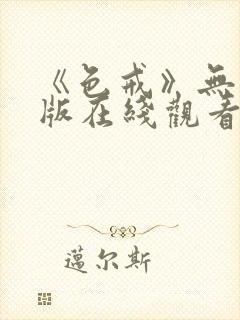 《色戒》無
版在綫觀看
邁尔斯